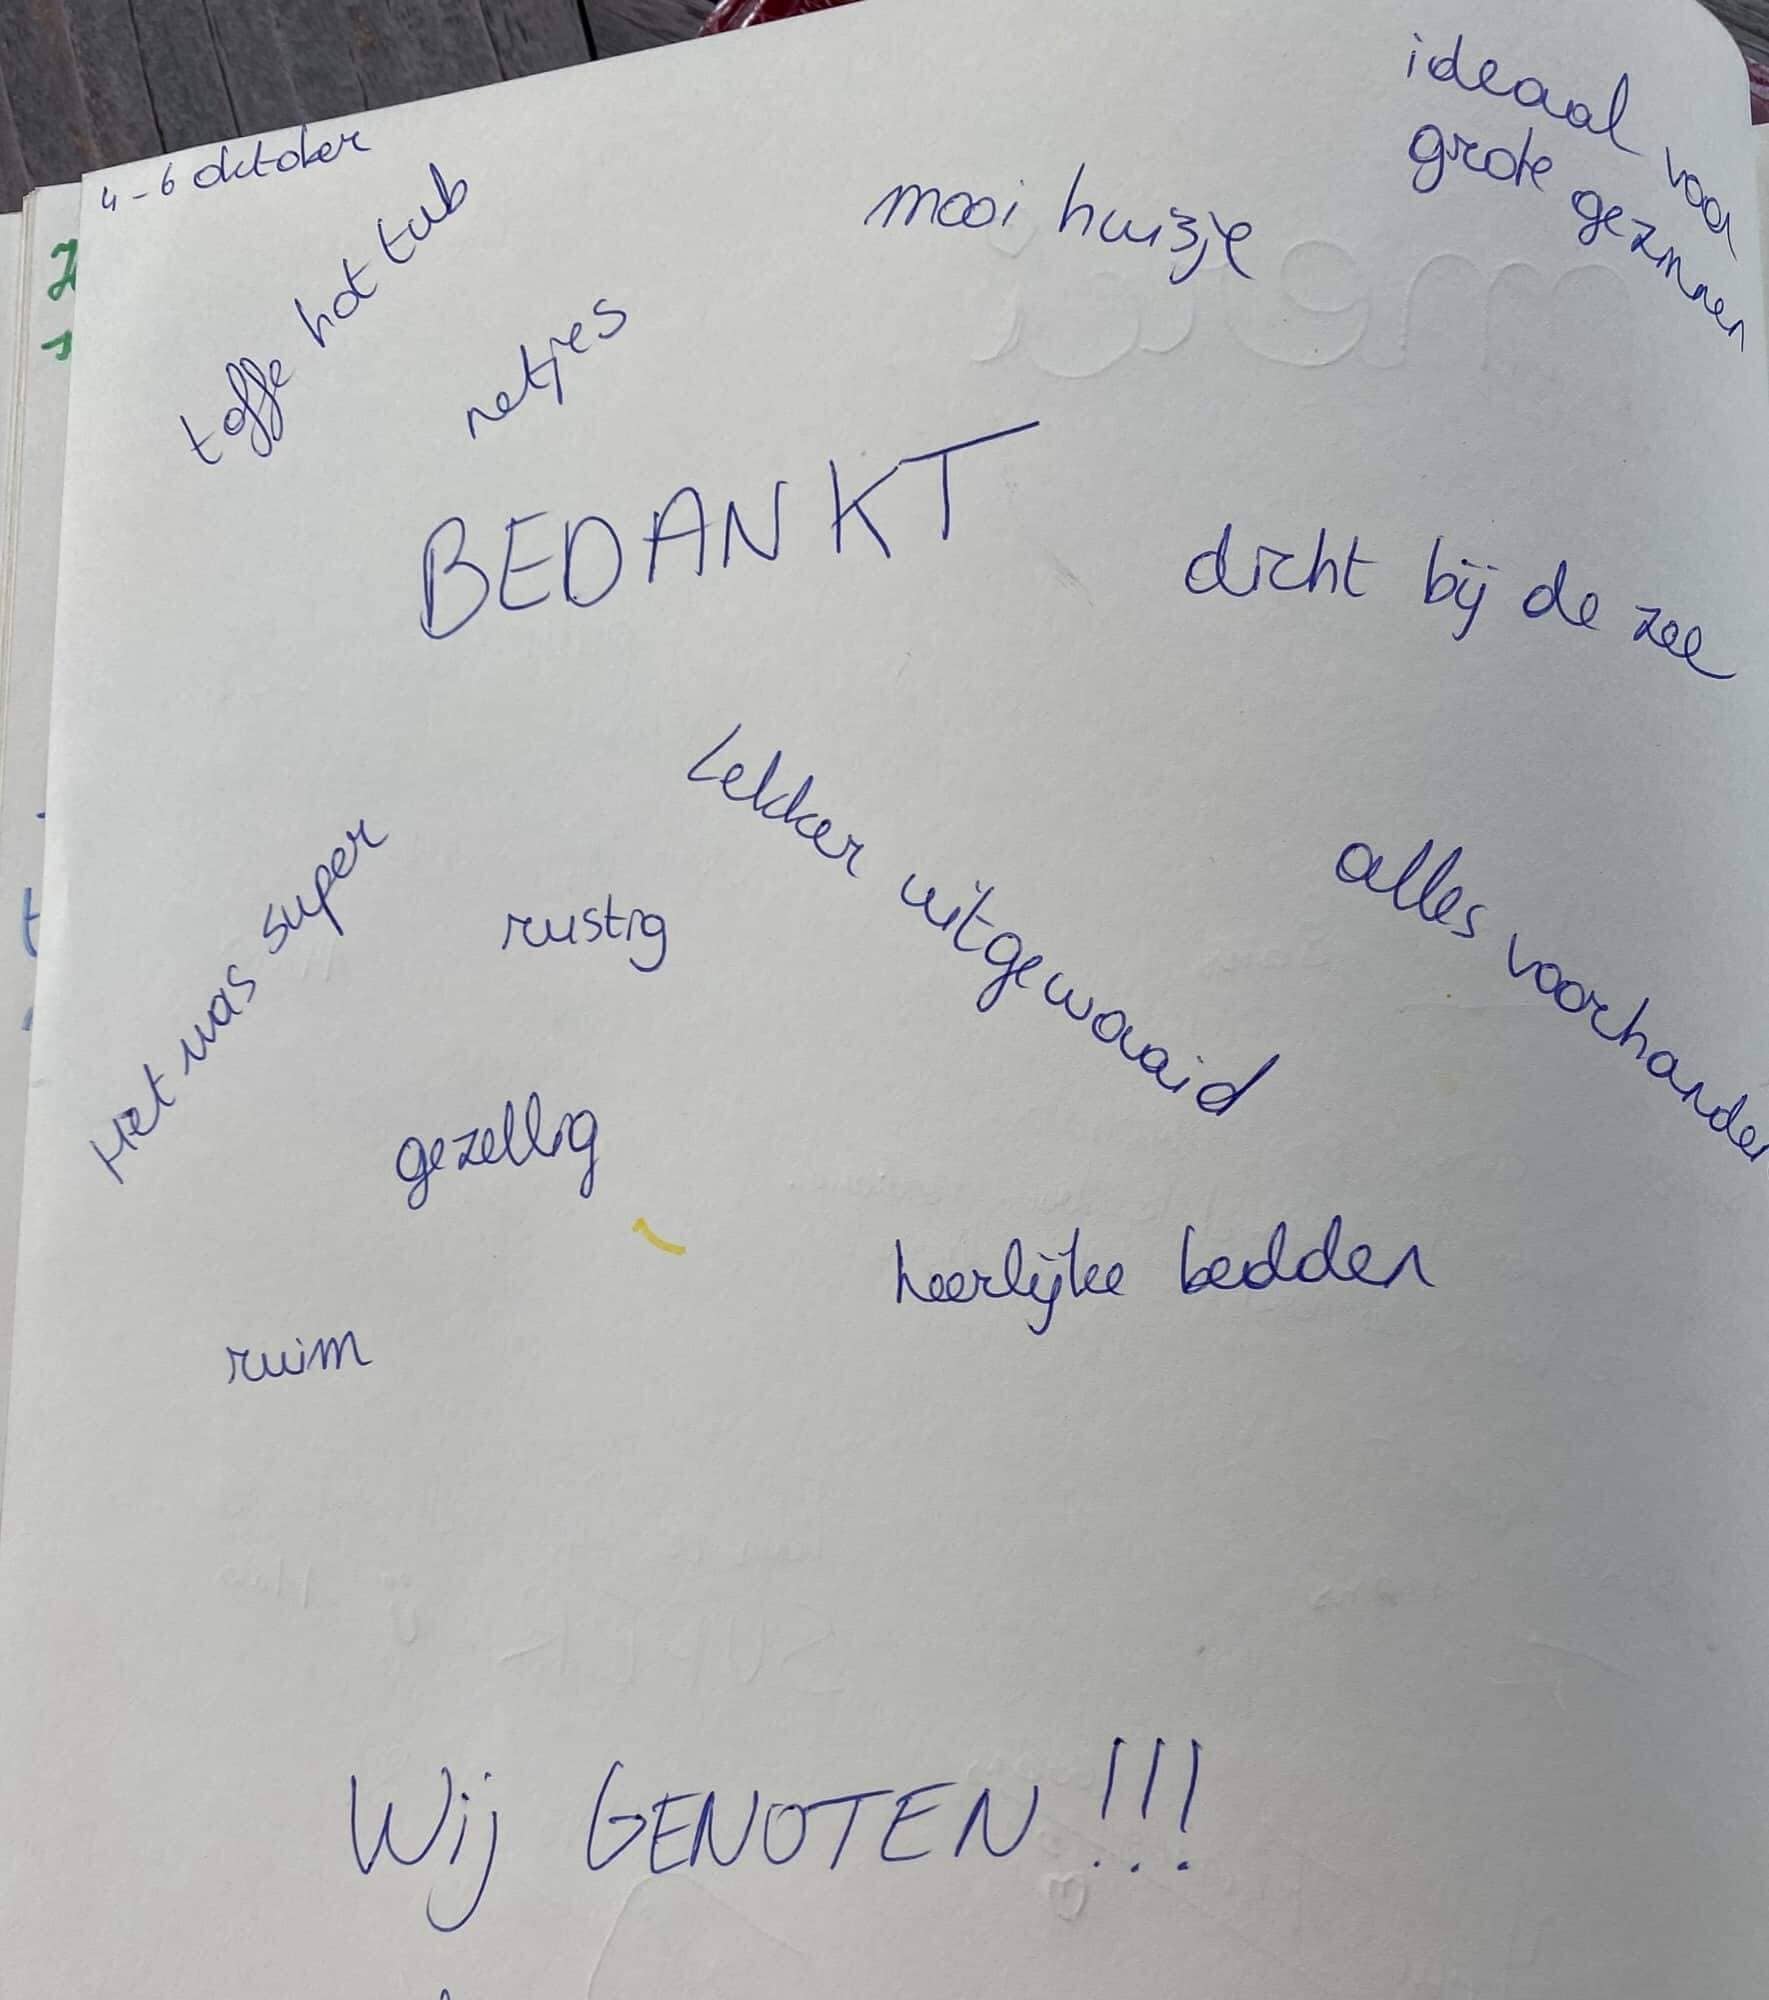 4-6 oktober
ideaal voor
grote gezinnen
toffe hot tub
mooi huisje
netjes
BEDANKT
dicht bij de zee
Lekker uitgewaaid
Het was super
rustig
alles voorhanden
gezellig
heerlijke bedden
ruim
Wij GENOTEN!!!